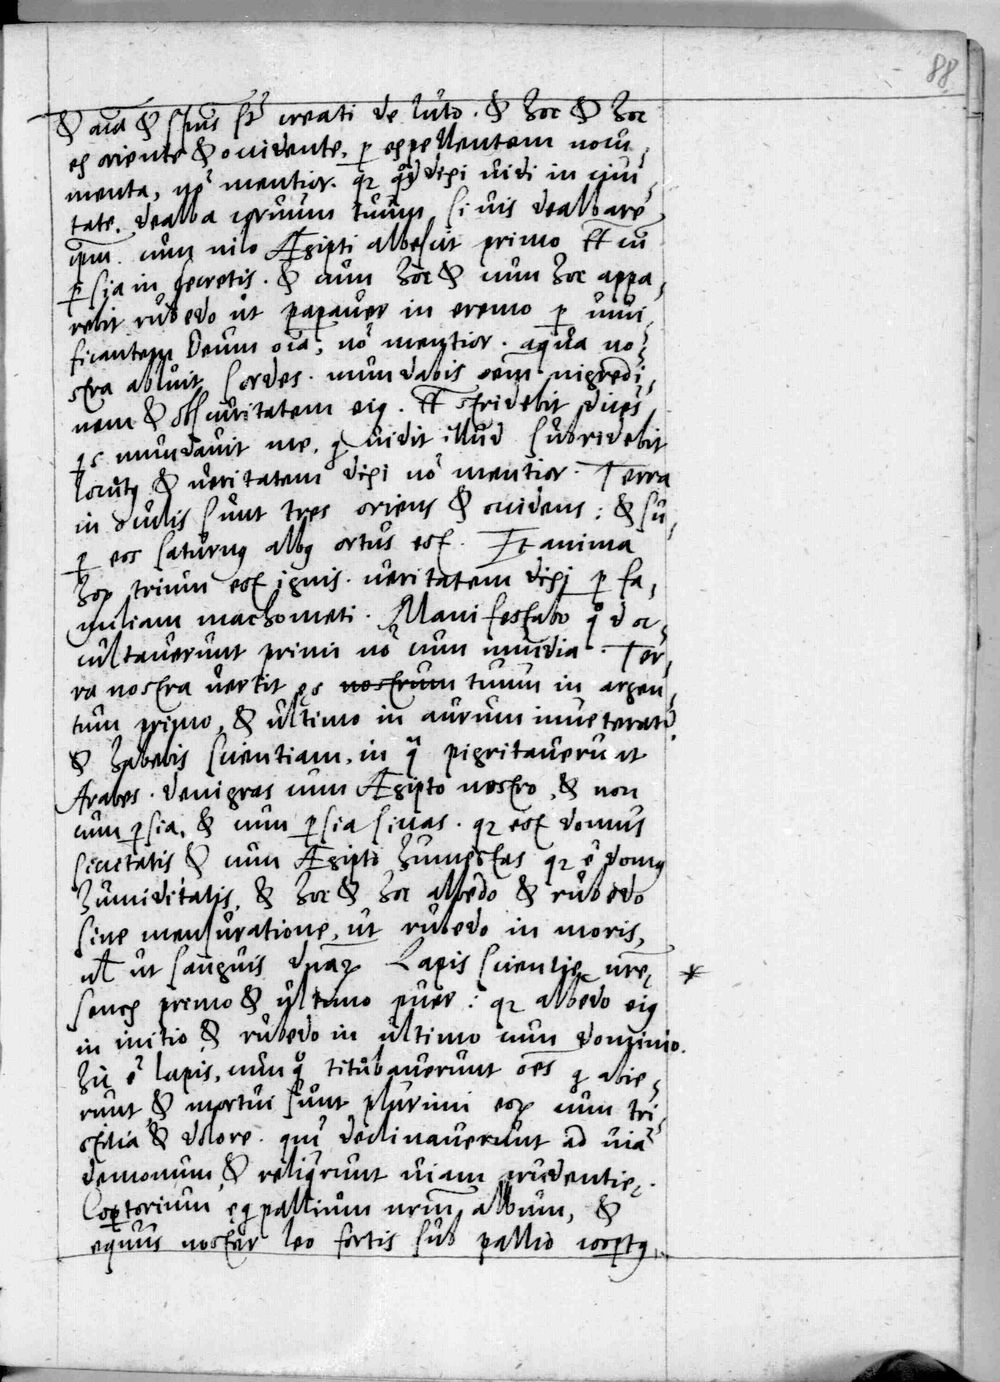 88
& aīa & sp̄us st̄ creati de luto. & hoc & hoc
ex oriente & occidente, p expellentem nocu,
menta, nō mentior. qz qd dixi vidi in civi,
tate. dealba corvum tuum, si vis dealbare
ip̄m cum nilo Ægipti albescit primo Et cū
psia in secretis. & cum hoc & cum hoc appa,
rebit rubedo ut papaver in eremo p vivi,
ficantem Deum oīa, nō mentior. aqua no,
stra abluit sordes. mundabis oēm nigredi,
nem & obscuritatem eiq. Et stridebit dicēs
qs mundavit me, q vidit illud subridebit
locutq & veritatem dixi nō mentior. Terra
in oculis sunt tres oriens & occidens: & su,
p eos saturnq albq ortus est. Et anima
hoꝝ trium est ignis. veritatem dixi p fa,
miliam machometi. Manifestabo qd oc,
cultaverunt primi nō cum invidia. Ter,
ra nostra vertit ęs nostrum tuum in argen,
tum primo, & ultimo in aurum inveteratū
& habebis scientiam, in q̄ pigritaverunt
Arabes. denigras cum Ægipto nostro, & non
cum psia, & cum psia siccas. qz est domus
siccitatis & cum Ægipto humectas qz ē domq
humiditatis, & hoc & hoc albedo & rubedo
sine mensuratione, ut rubedo in moris,
ul ut sanguis dnaꝝ Lapis scientię nr̄ę *
senex primo & ultimo puer: qz albedo eiq
in initio & rubedo in ultimo cum dominio.
hic ē lapis, cum quo titubaverunt oēs q abie,
runt & mortui sunt plurimi eoꝝ cum tri,
stitia & dolore. qui declinaverunt ad viā
demonum & reliqrunt viam prudentię.
Coptorium ęq pallium nrm̄ album, &
equus noster leo fortis sub pallio coptq.